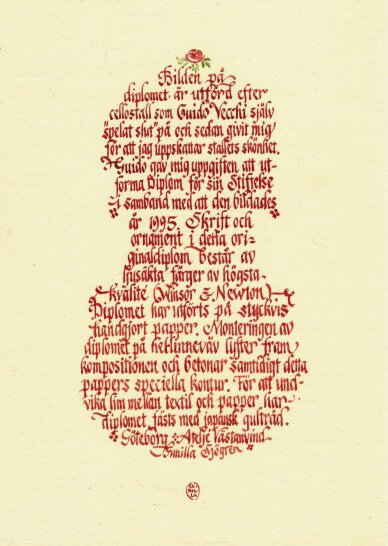 Bilden på
diplomet är utförd efter
cellostall som Guido Vecchi själv
"spelat slut" på och sedan givit mig
för att jag uppskattar stallets skönhet.
Guido gav mig uppgiften att ut-
forma Diplom för sin Stiftelse
i samband med att den bildades
år 1995. Skrift och
ornament i detta ori-
ginaldiplom består av
ljusäkta färger av högsta
kvalité (Winsor & Newton)
Diplomet har utförts på styckvis
handgjort papper. Monteringen av
diplomet på hellinneväv lyfter fram
kompositionen och betonar samtidigt detta
pappers speciella kontur. För att und-
vika lim mellan textil och papper, har
diplomet fästs med japansk gulltråd.
Göteborg & Ateljé Västanvind
Gunilla Sjögren